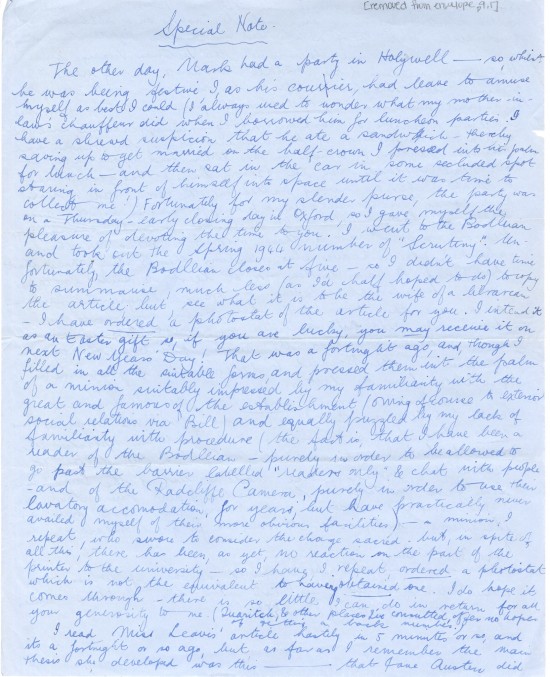 [removed from envelope, p.1]
Special Note.
The other day, Mark had a party in Holywell — so whilst
he was being festive I, as his courrier, had leave to amuse
myself as best I could (I always used to wonder what my mother-in-
law's chauffeur did when I borrowed him for luncheon parties. I
have a shrewd suspicion that he ate a sandwich – thereby
saving up to get married on the half-crown I pressed into his palm
for lunch – and then sat in the car in some secluded spot
staring in front of himself into space until it was time to
collect me!) Fortunately for my slender purse, the party was
on a Thursday – early closing day in Oxford, so I gave myself the
pleasure of devoting the time to you. I went to the Bodleian
and took out the Spring 1944 number of "Scrutiny". Un-
fortunately, the Bodleian closes at five – so I didn't have time
to summarise, much less (as I'd half hoped to do) to copy
the article, but see what it is to be the wife of a librarian
– I have ordered a photostat of the article for you. I intend it
as an Easter gift so, if you are lucky, you may receive it on
next New Years' Day! That was a fortnight ago, and though I
filled in all the suitable forms and pressed them into the palm
of a minion suitably impressed by my familiarity with the
great and famous of the establishment (owing of course to exterior
social relations via Bill) and equally puzzled by my lack of
familiarity with procedure (the fact is, that I have been a
reader of the Bodleian – purely in order to be allowed to
go past the barrier labelled "readers only" & chat with people
– and of the Radcliffe Camera, purely in order to use their
lavatory accomodation, for years, but have practically never
availed myself of their more obvious facilities) – a minion, I
repeat, who swore to consider the charge sacred. but, in spite of
all this, there has been, as yet, no reaction on the part of the
printer to the university – so I have, I repeat, ordered a photostat
which is not the equivalent to having obtained one. I do hope it
comes through – there is so little I can do in return for all
your generosity to me. (& other
I read Miss Leavis' article hastily in 5 minutes or so, and
its a fortnight or so ago, but as far as I remember the main
thesis she developed was this —— that Jane Austen did